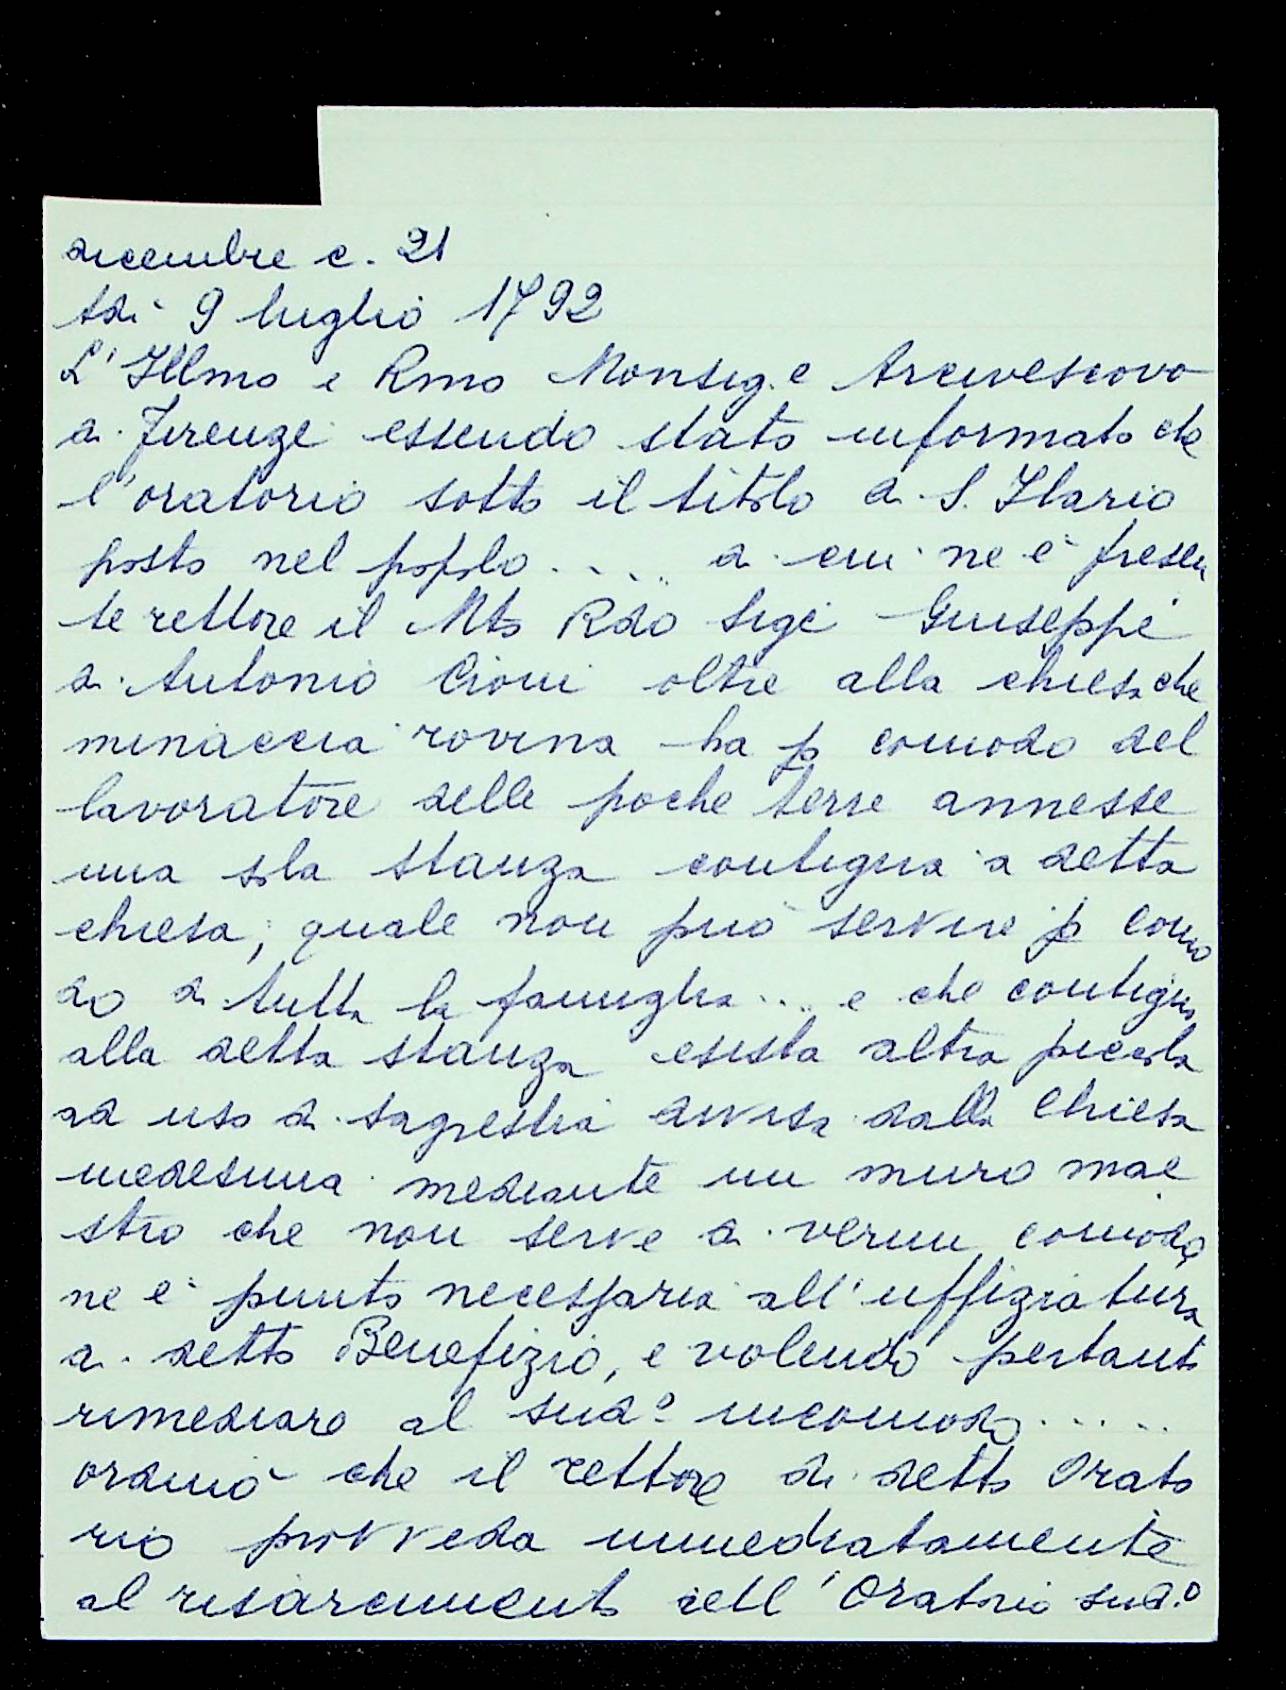 dicembre c. 21
Adi 9 luglio 1792
L'Illmo e Rmo Monsig.e Arcivescovo
di Firenze essendo stato informato che
l'oratorio sotto il titolo di S. Ilario
posto nel popolo ..... di cui ne è presen
te rettore il Mto Rdo Sige Giuseppe
di Antonio Cioni oltre alla chiesa che
minaccia rovina ha p comodo del
lavoratore delle poche terre annesse
una sola stanza contigua a detta
chiesa, quale non può servire p como
do di tutta la famiglia .... e che contigua
alla detta stanza esista altra piccola
ad uso di sagrestia divisa dalla Chiesa
medesima mediante un muro mae
stro che non serve di verun comodo
ne è punto necessaria all'uffiziatura
di detto Benefizio, e volendo pertanto
rimediare al sud.o incomodo .....
ordinò che il rettore di detto Orato
rio provveda immediatamente
al risarcimento dell'Oratorio sud.o